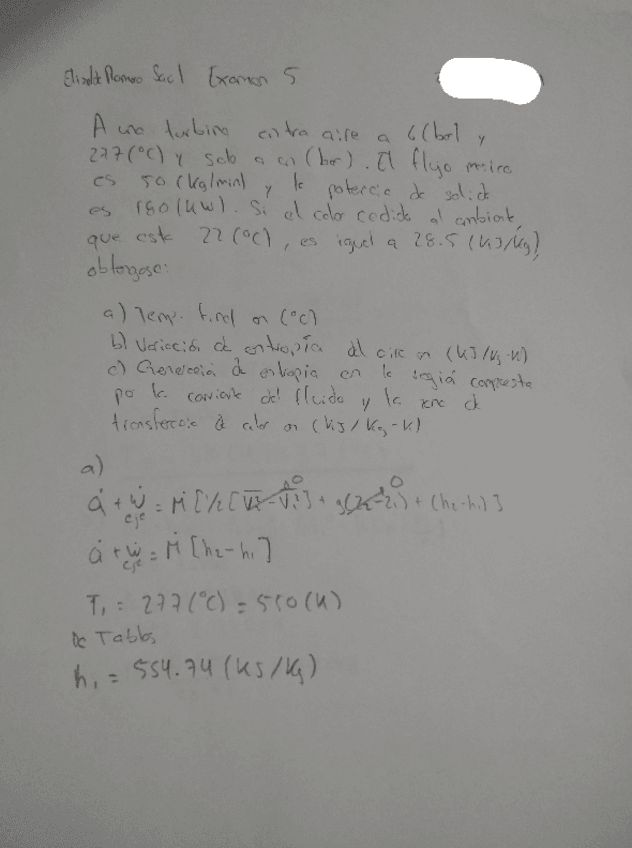 Examen 5
A una turbina entra aire a 6 (bar) y
277 (°C) y sale a un (bar). El flujo másico
es 50 (kg/min) y la potencia de salida
es 180 (kW). Si el calor cedido al ambiente,
que esta 22 (°C), es igual a 28.5 (kJ/kg)
obtengase:
a) Temp. final en (°C)
b) Variación de entropía del aire en (kJ/kg-K)
c) Generación de entropia en la región compuesta
por la corriente del fluido y la zona de
transferencia de calor en (kJ/kg-K)
a)
Q̇ + Ẇeje = Ṁ [1/2 [V̄₂² - V̄₁²]→0 + g(Z₂-Z₁)→0 + (h₂-h₁)]
Q̇ + Ẇeje = Ṁ [h₂-h₁]
T₁ = 277 (°C) = 550 (K)
De Tablas
h₁ = 554.74 (kJ/kg)